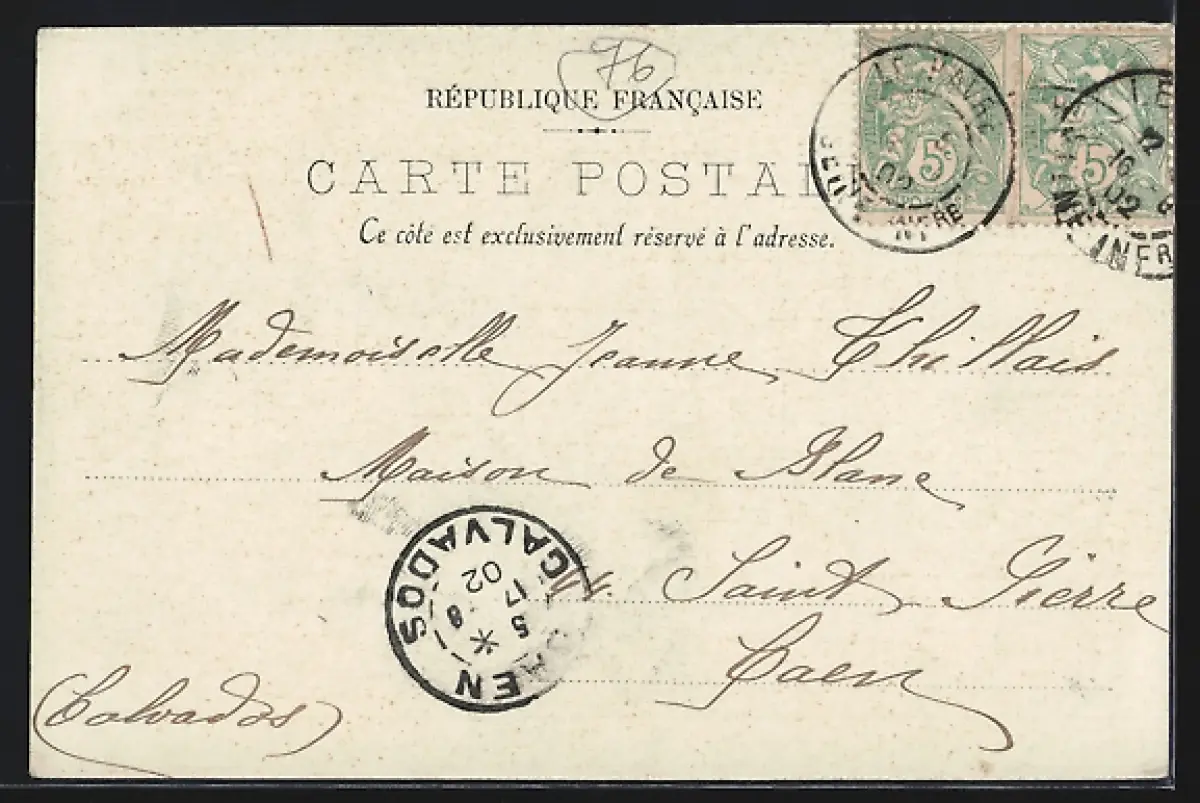 76
RÉPUBLIQUE FRANÇAISE
CARTE POSTAL
Ce côté est exclusivement réservé à l'adresse.
LE HAVRE
02
5
5
16
02
INFRE
Mademoiselle Jeanne Thillais
Maison de Blanc
Saint Pierre
Caen
(Calvados)
CAEN
CALVADOS
5
17
02